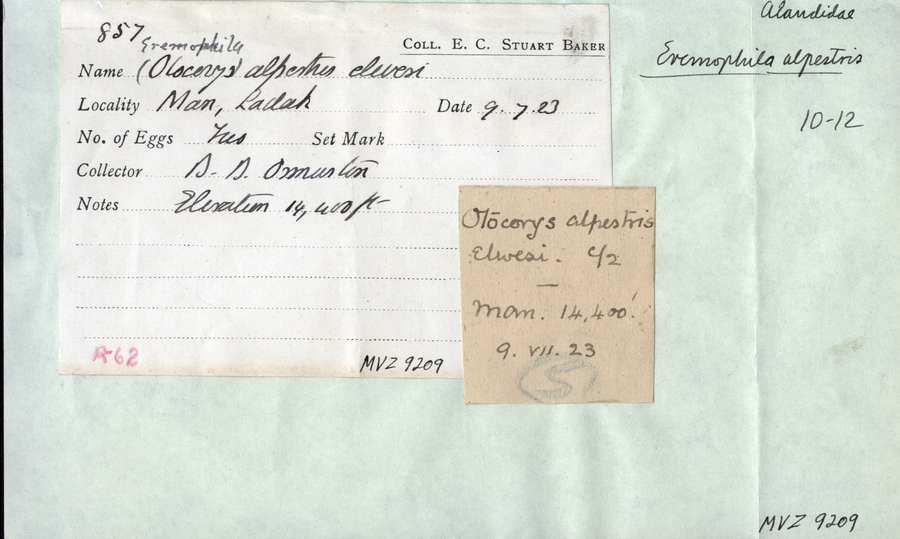 857
Eremophila
COLL. E. C. STUART BAKER
Name (Otocorys) alpestris elwesi
Locality Man, Ladak Date 9.7.23
No. of Eggs Two Set Mark
Collector B. B. Osmaston
Notes Elevation 14,400 ft
R-62
MVZ 9209
Otocorys alpestris
Elwesi. c/2
Man. 14,400'.
9. VII. 23
5
Alaudidae
Eremophila alpestris
10-12
MVZ 9209